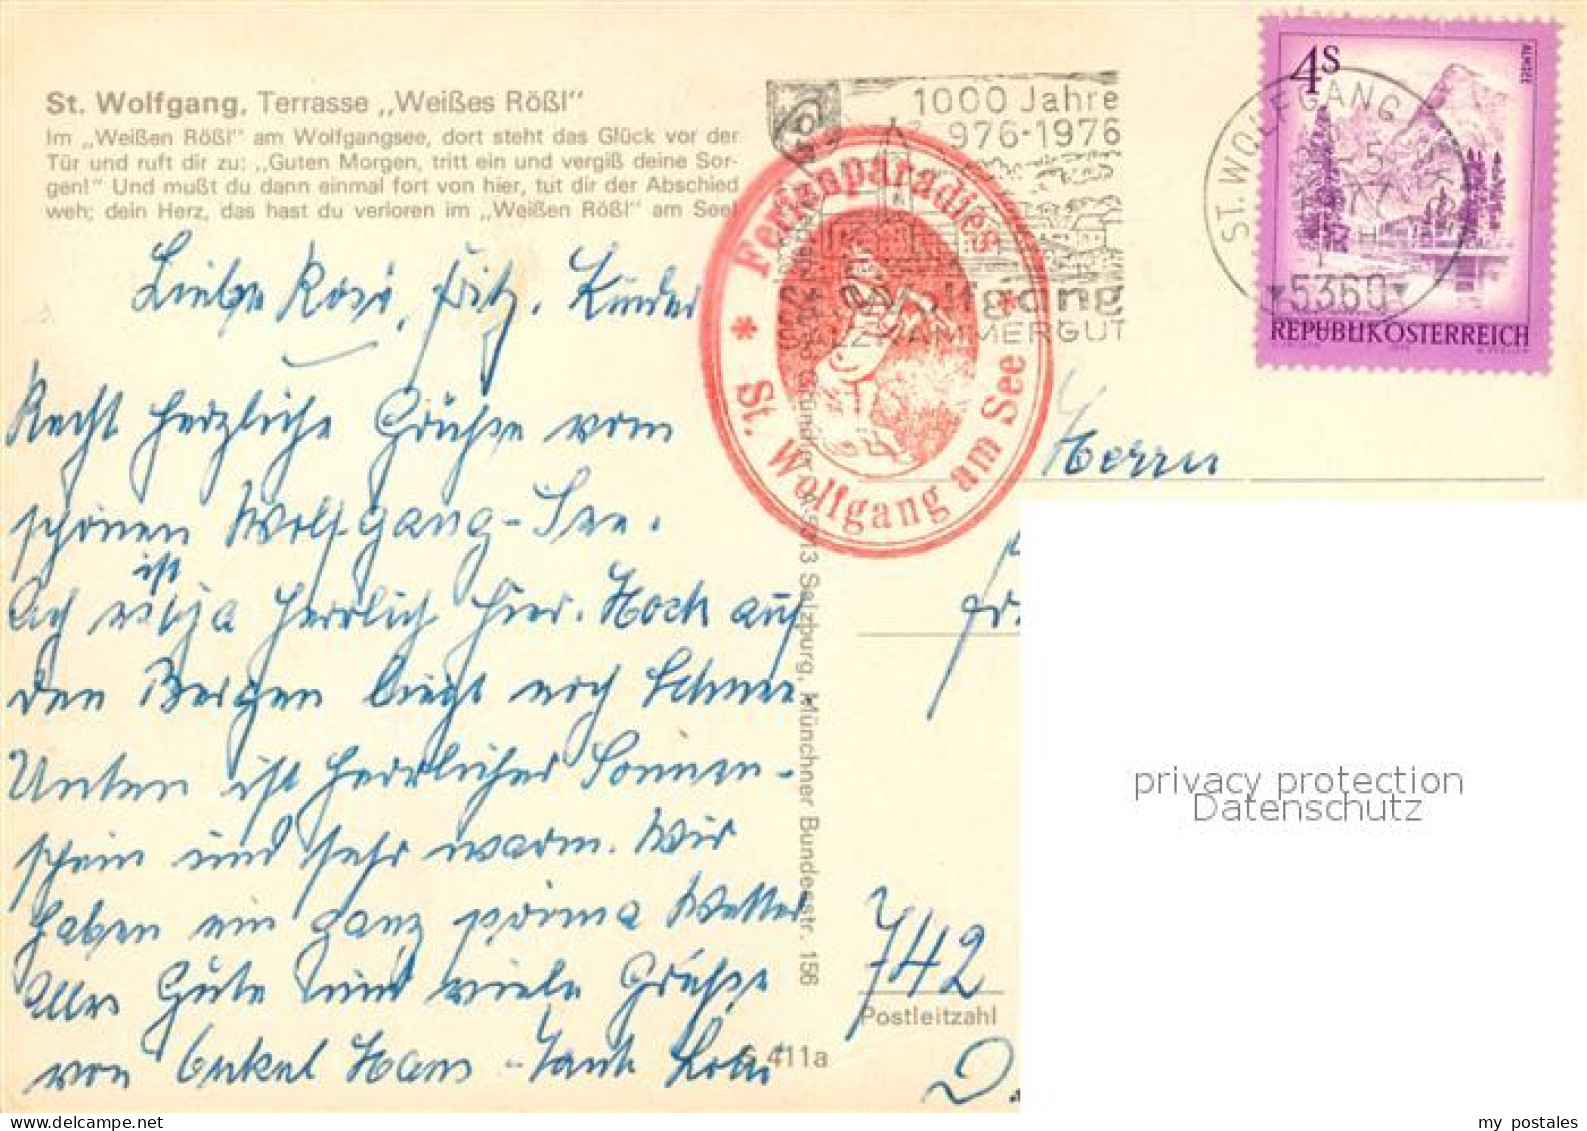 St. Wolfgang, Terrasse „Weißes Rößl“
Im „Weißen Rößl“ am Wolfgangsee, dort steht das Glück vor der
Tür und ruft dir zu: „Guten Morgen, tritt ein und vergiß deine Sor-
gen!“ Und mußt du dann einmal fort von hier, tut dir der Abschied
weh; dein Herz, das hast du verloren im „Weißen Rößl“ am See!
Liebe Rosi, Fritz, Kinder
Recht herzliche Grüße vom
schönen Wolfgang-See.
ist
ja herrlich hier. Hoch auf
den Bergen liegt noch Schnee.
Unten ist herrlicher Sonnen-
schein und sehr warm. Wir
haben ein ganz prima Wetter
Alles Gute und viele Grüße
von Onkel Hans - Tante
1000 Jahre
976-1976
Wolfgang
SALZKAMMERGUT
Ferienparadies
* St. Wolfgang am See *
4S
ALMSEE
REPUBLIK ÖSTERREICH
ST. WOLFGANG I.
5360
Herrn
Salzburg, Münchner Bundesstr. 156
742
Postleitzahl
S 411a
privacy protection
Datenschutz
my_postales
delcampe.net